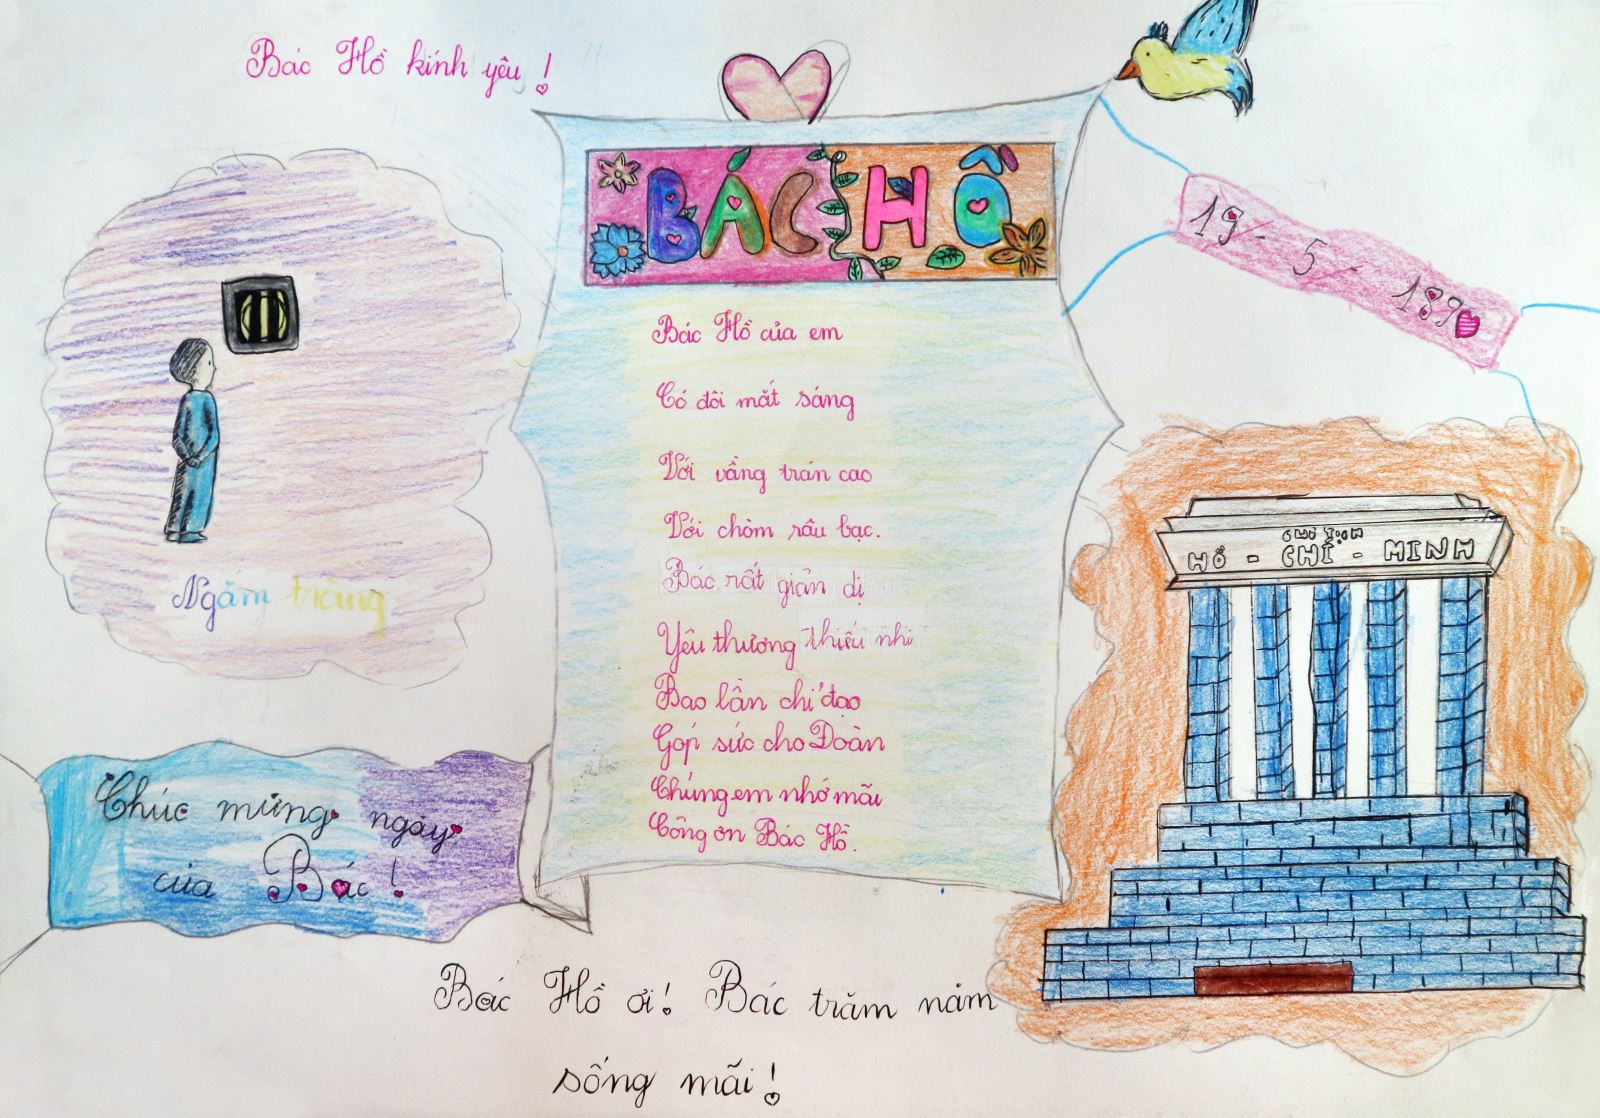 Bác Hồ kính yêu !
BÁC HỒ
19 - 5 - 1890
Bác Hồ của em
Có đôi mắt sáng
Với vầng trán cao
Với chòm râu bạc.
Bác rất giản dị
Yêu thương thiếu nhi
Bao lần chỉ đạo
Góp sức cho Đoàn
Chúng em nhớ mãi
Công ơn Bác Hồ.
Ngắm trăng
CHỦ TỊCH
HỒ - CHÍ - MINH
Chúc mừng ngày
của Bác !
Bác Hồ ơi! Bác trăm năm
sống mãi !